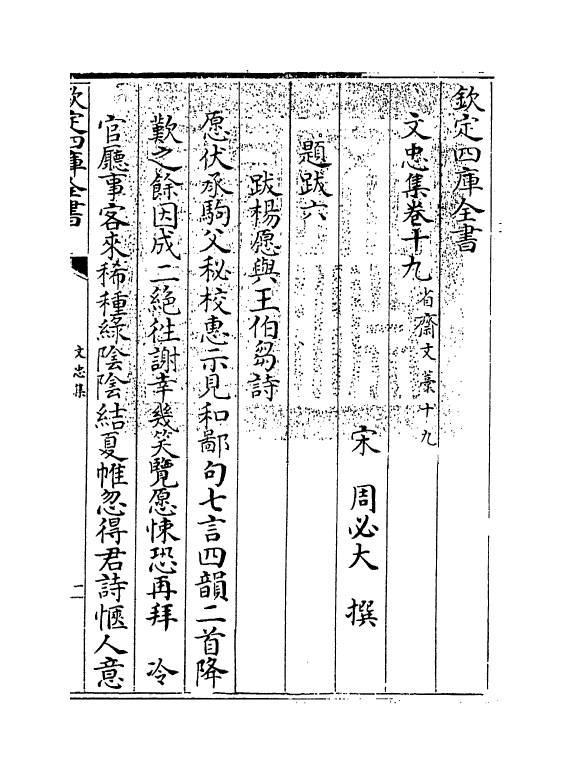 欽定四庫全書
文忠集卷十九 省齋文藁十九
宋 周必大 撰
題跋六
跋楊愿與王伯芻詩
愿伏承駒父秘校惠示見和鄙句七言四韻二首降
歎之餘因成二絶徃謝幸幾笑覽愿悚恐再拜 冷
官廳事客來稀種緑陰陰結夏帷忽得君詩愜人意
欽定四庫全書
文忠集
二